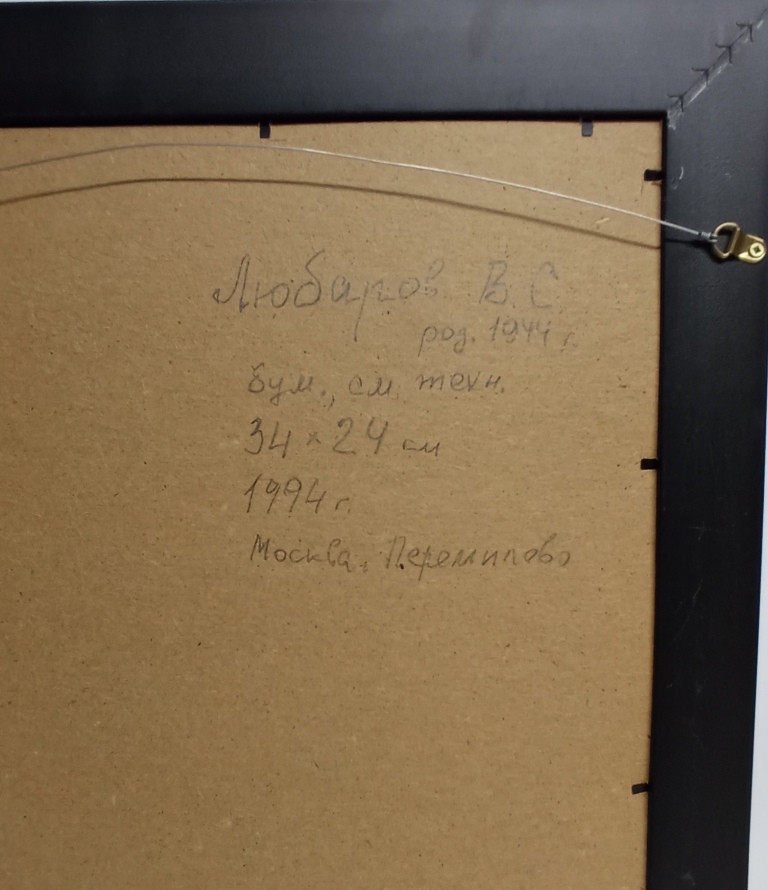 Любаров В. С.
род. 1944 г.
Бум., см. техн.
34 × 24 см
1994 г.
Москва. Перемилово